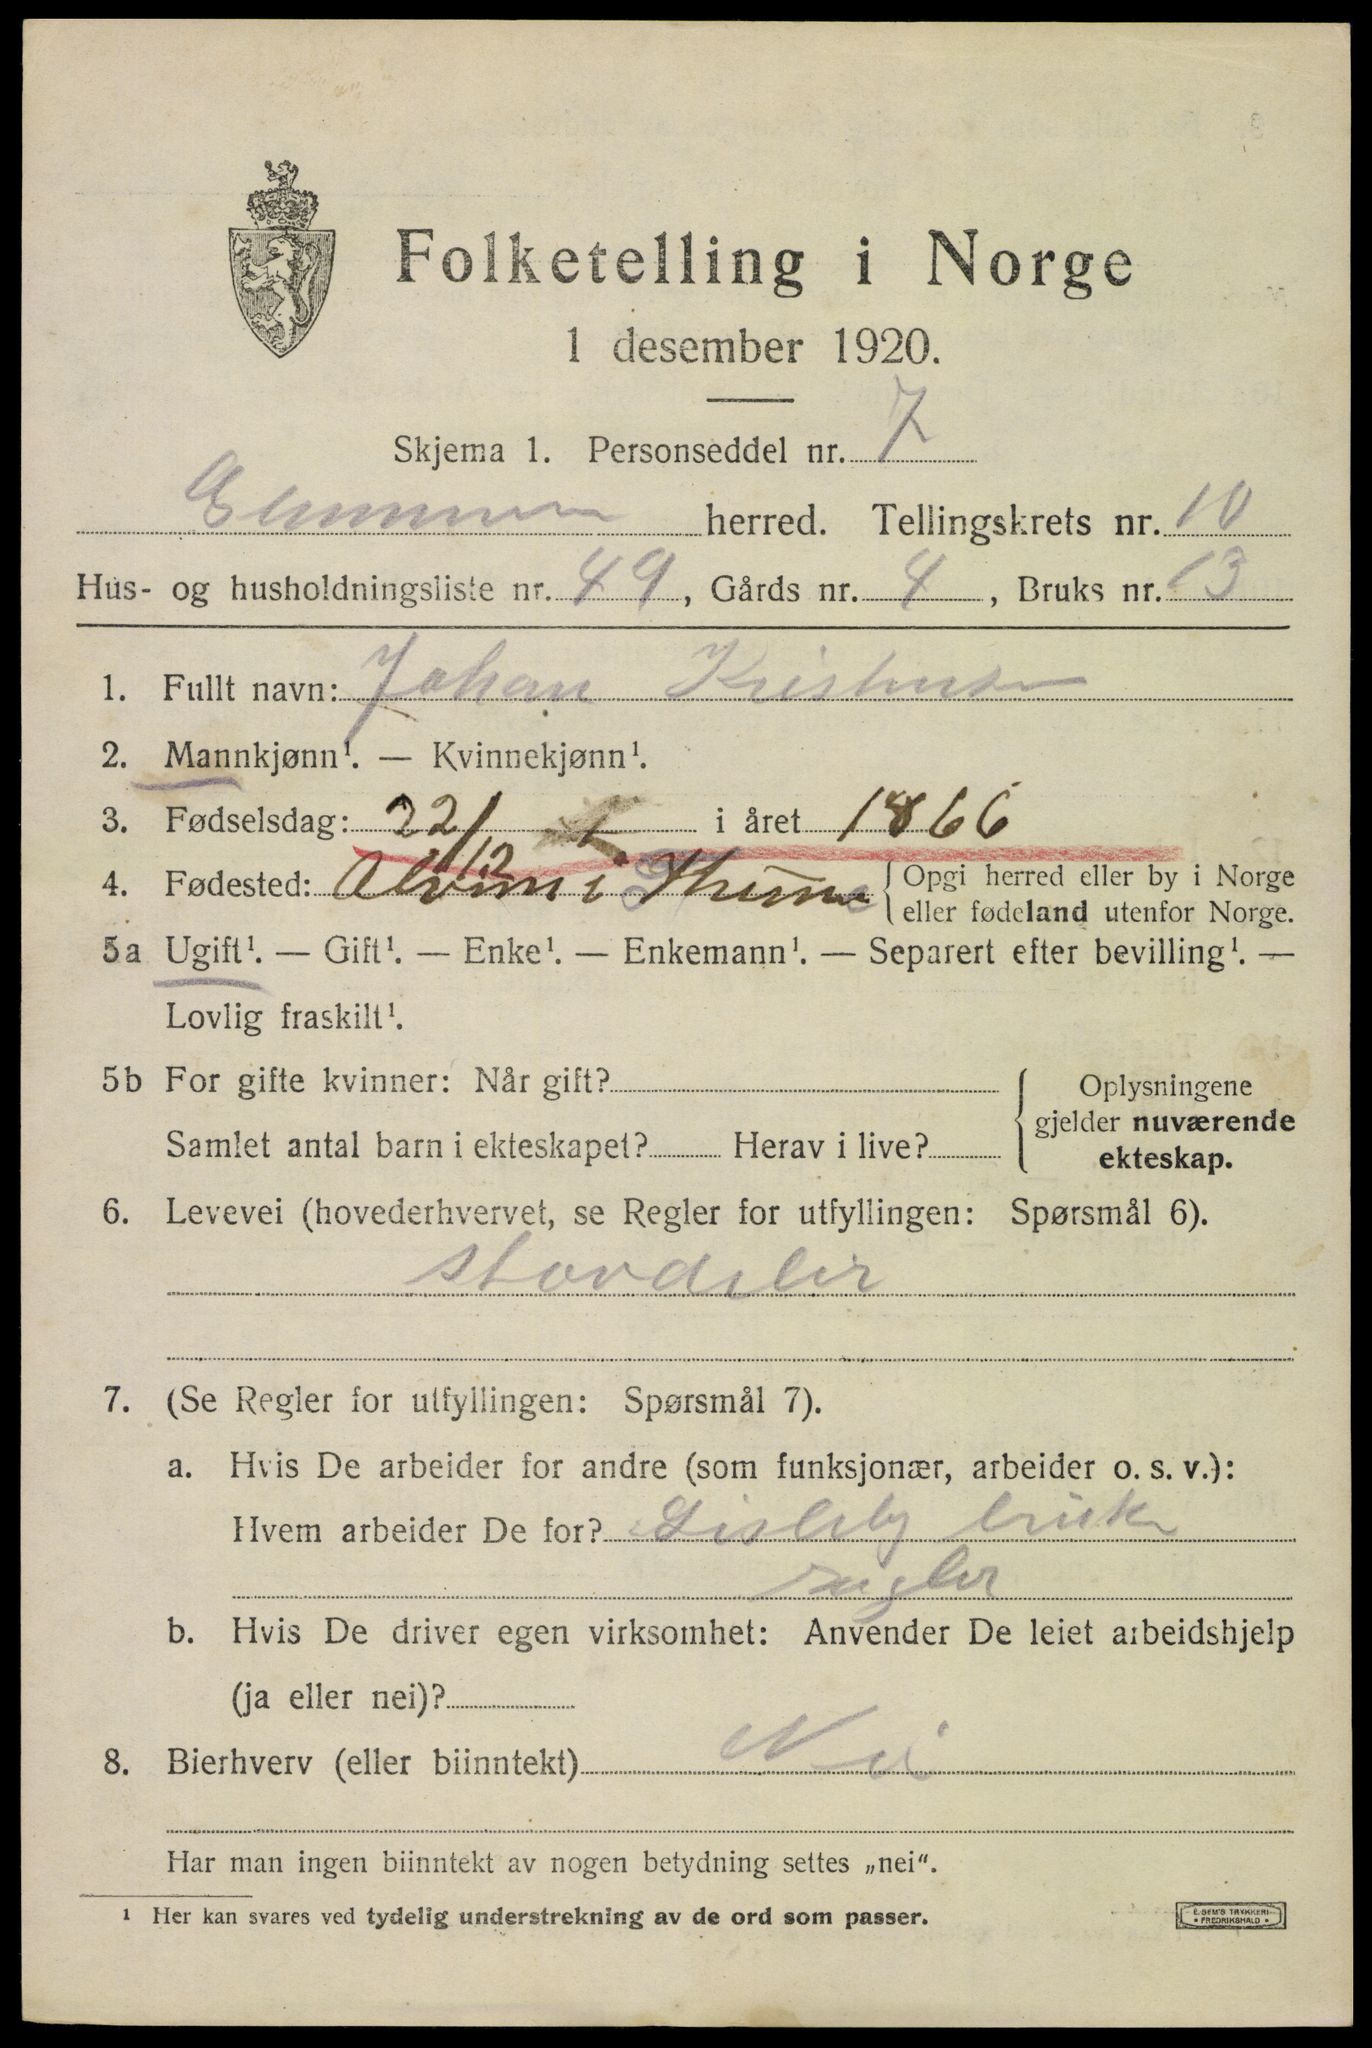 Folketelling i Norge
1 desember 1920.
Skjema 1. Personseddel nr. 7
Glemmen herred. Tellingskrets nr. 10
Hus- og husholdningsliste nr. 49, Gårds nr. 4, Bruks nr. 13
1. Fullt navn: Johan Kristensen
2. Mannkjønn¹. — Kvinnekjønn¹.
3. Fødselsdag: 22/12 i året 1866
4. Fødested: Alvim i Thune {Opgi herred eller by i Norge
eller fødeland utenfor Norge.
5a Ugift¹. — Gift¹. — Enke¹. — Enkemann¹. — Separert efter bevilling¹. —
Lovlig fraskilt¹.
5b For gifte kvinner: Når gift?
Samlet antal barn i ekteskapet? Herav i live?
Oplysningene
gjelder nuværende
ekteskap.
6. Levevei (hovederhvervet, se Regler for utfyllingen: Spørsmål 6).
7. (Se Regler for utfyllingen: Spørsmål 7).
a. Hvis De arbeider for andre (som funksjonær, arbeider o. s. v.):
Hvem arbeider De for? Lisleby bruk
b. Hvis De driver egen virksomhet: Anvender De leiet arbeidshjelp
(ja eller nei)?
8. Bierhverv (eller biinntekt) Nei
Har man ingen biinntekt av nogen betydning settes „nei“.
¹ Her kan svares ved tydelig understrekning av de ord som passer.
E. SEM'S TRYKKERI
FREDRIKSHALD